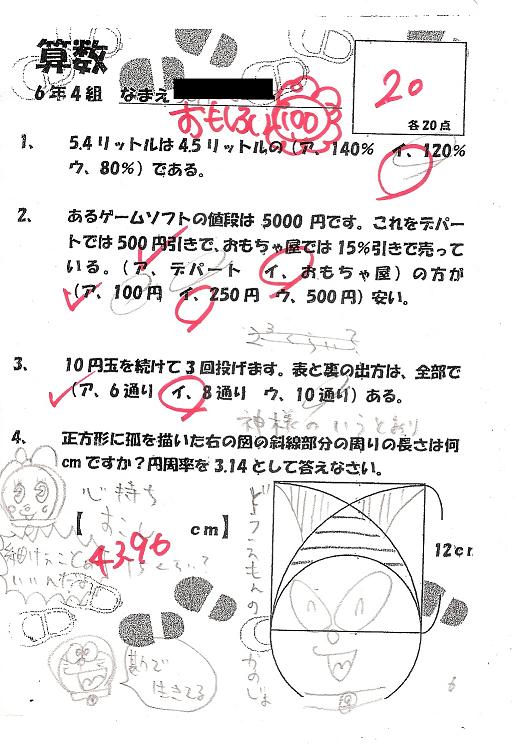 算数
6年4組 なまえ
おもしろい 100
20
各20点
1、 5.4リットルは4.5リットルの(ア、140% イ、120%
ウ、80%)である。
2、 あるゲームソフトの値段は5000円です。これをデパー
トでは500円引きで、おもちゃ屋では15%引きで売って
いる。(ア、デパート イ、おもちゃ屋)の方が
(ア、100円 イ、250円 ウ、500円)安い。
3、 10円玉を続けて3回投げます。表と裏の出方は、全部で
(ア、6通り イ、8通り ウ、10通り)ある。
神様のいうとおり
4、 正方形に孤を描いた右の図の斜線部分の周りの長さは何
cmですか?円周率を3.14として答えなさい。
心持ち
【 cm】
43.96
細けぇことぁ
いいんだよ
12cm
勘で
生きてる
6